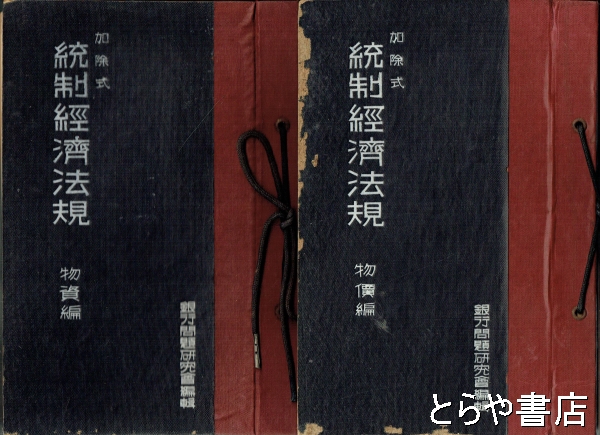 加除式
統制經濟法規
物資編
銀行問題研究會編輯
加除式
統制經濟法規
物價編
銀行問題研究會編輯
とらや書店